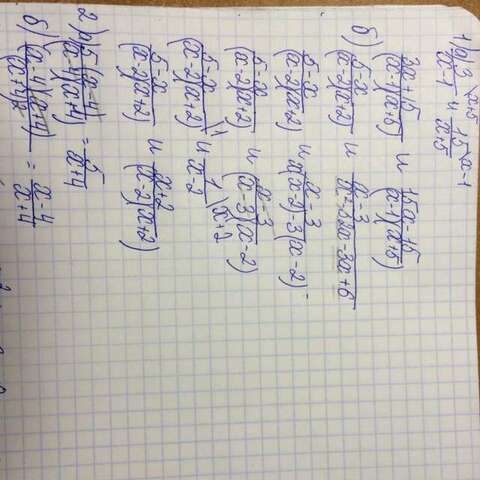 1) а) 3\x+5 / x-1 и 15\x-1 / x+5
3x+15 / (x-1)(x+5) и 15x-15 / (x-1)(x+5)
б) 5-x / (x-2)(x+2) и x-3 / x²-2x-3x+6
5-x / (x-2)(x+2) и x-3 / x(x-2)-3(x-2)
5-x / (x-2)(x+2) и x-3 / (x-3)(x-2)
5-x\1 / (x-2)(x+2) и 1\x+2 / x-2
5-x / (x-2)(x+2) и x+2 / (x-2)(x+2)
2) а) 5(x-4) / (x-4)(x+4) = 5 / x+4
б) (x-4)(x+4) / = x-4 / x+4